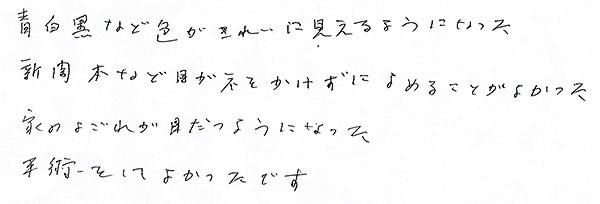 青白黒など色がきれいに見えるようになった
新聞本など目がネをかけずによめることがよかった
家のよごれが目だつようになった
手術をしてよかったです